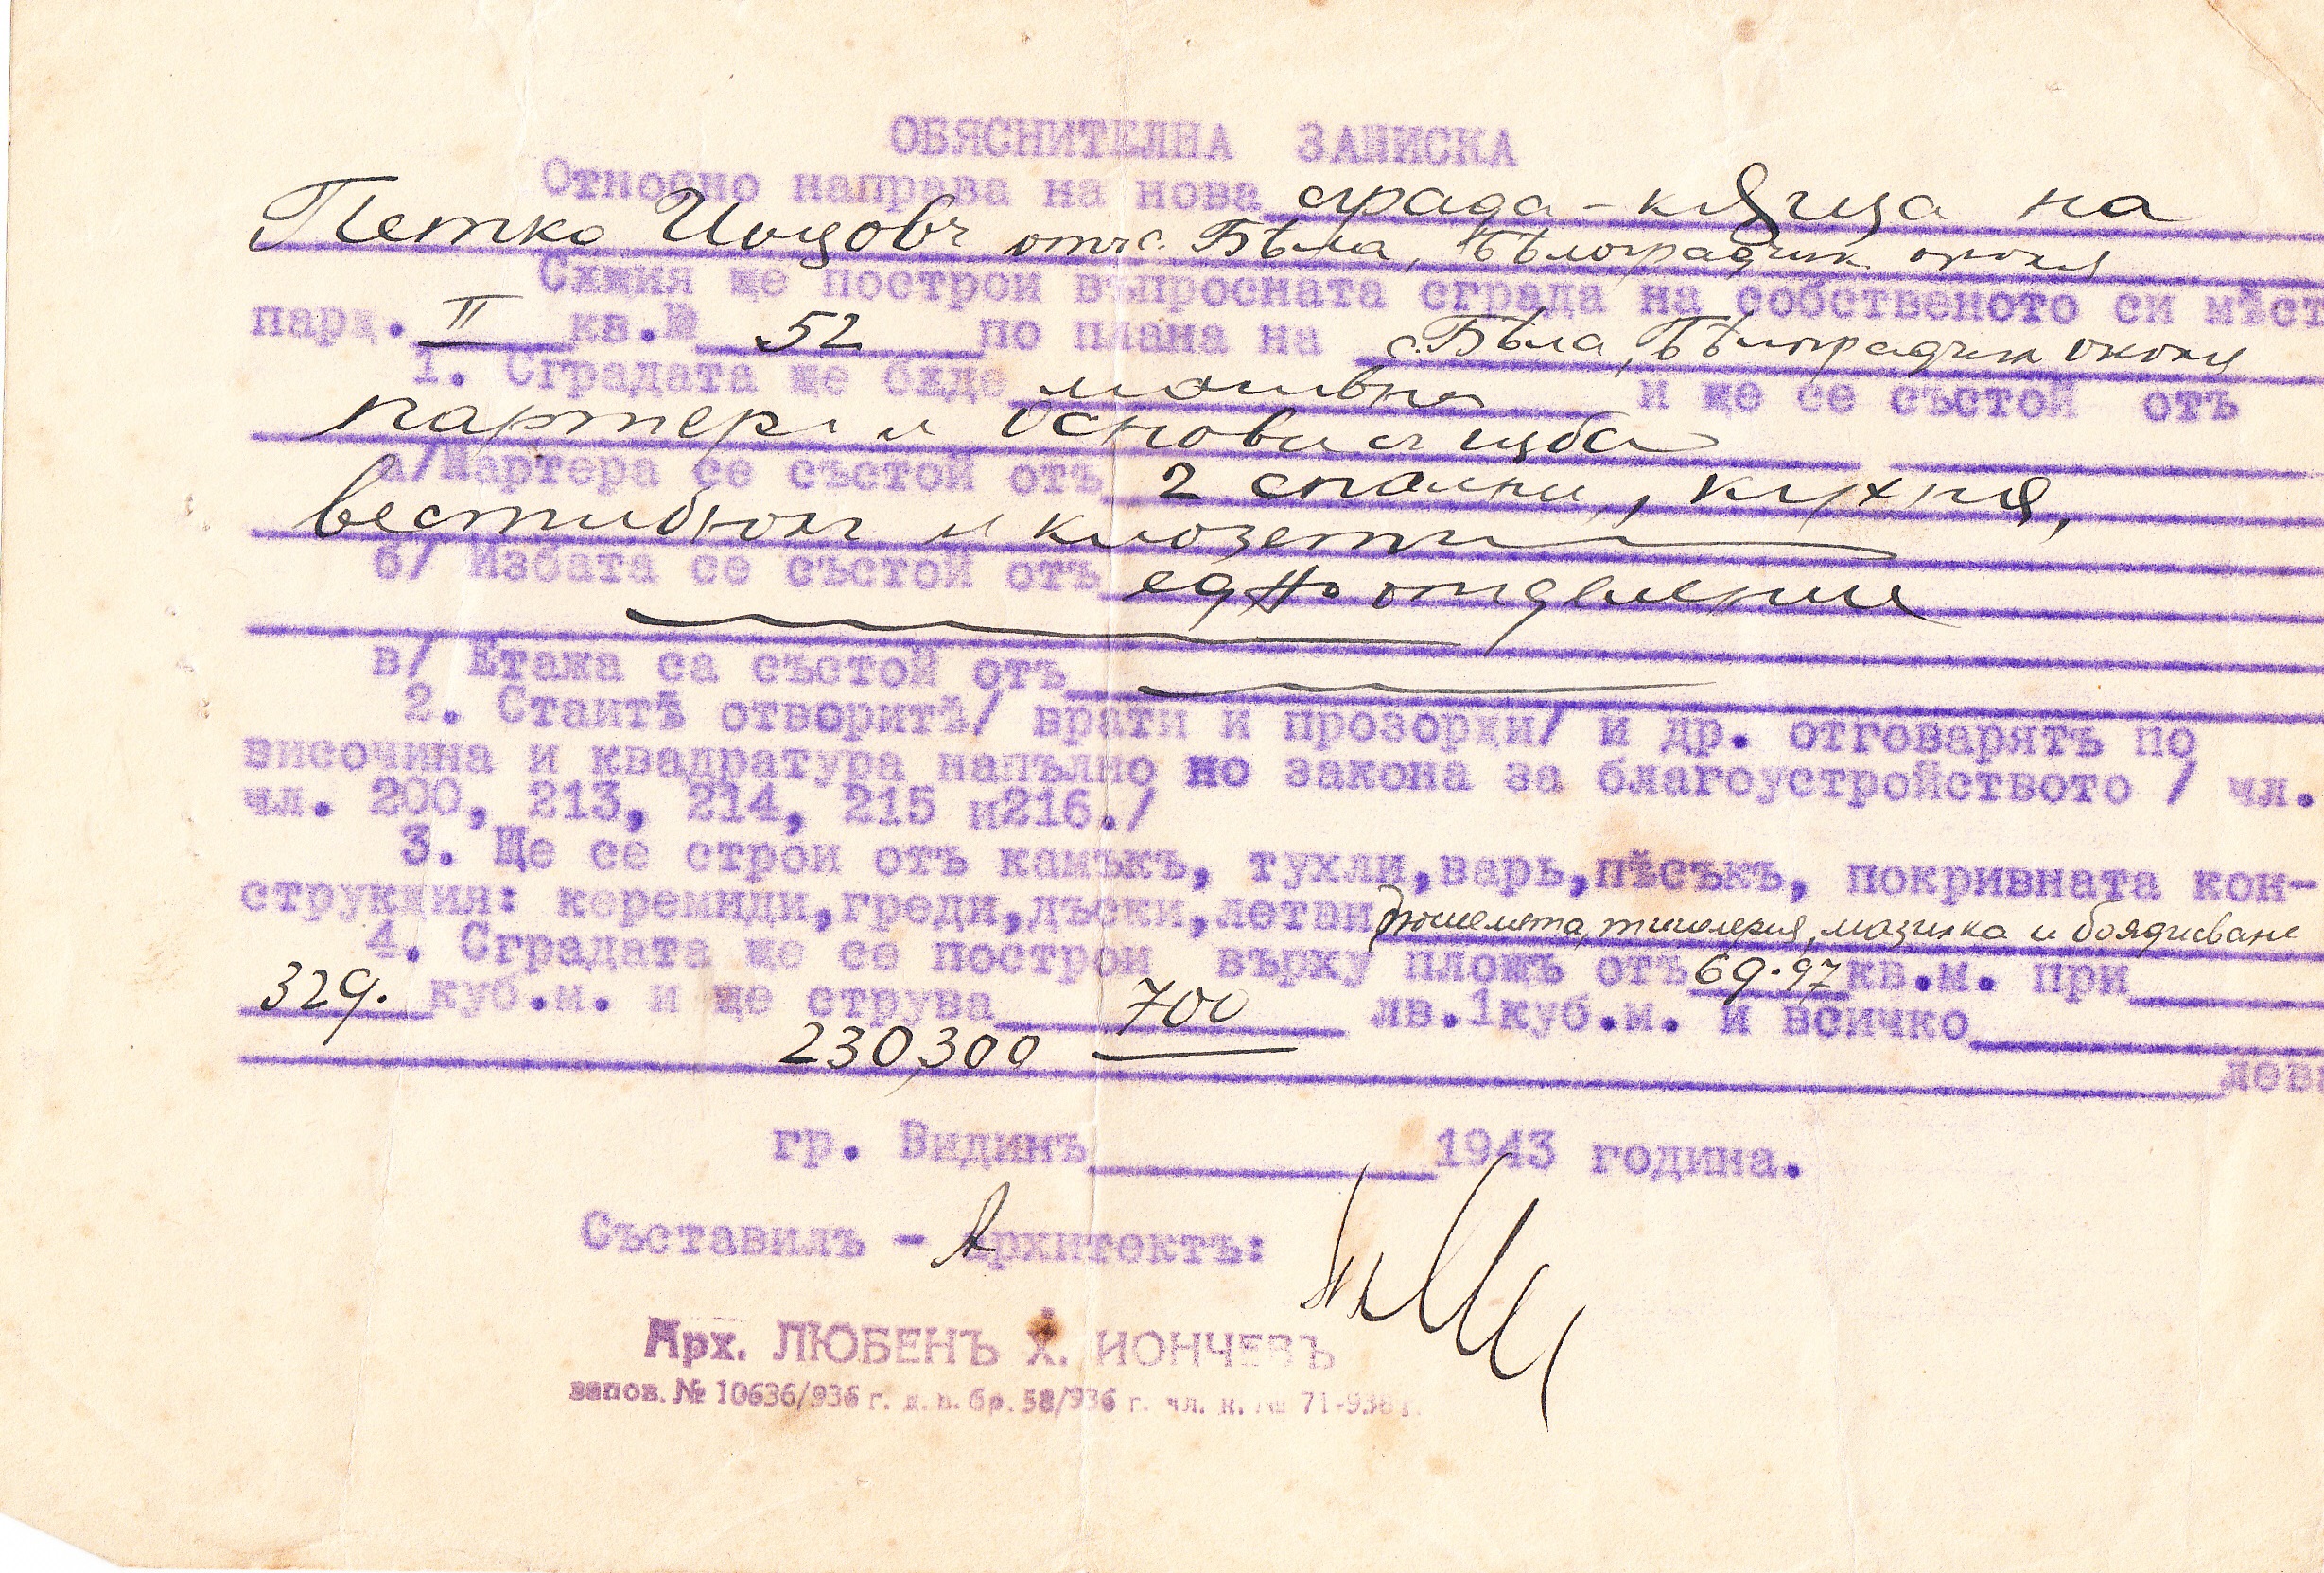 ОБЯСНИТЕЛНА ЗАПИСКА
Относно направа на нова сграда - къща на
Петко Цоцовъ отъ с. Бѣла, Бѣлоградчик. околия
Сѫщия ще построи въпросната сграда на собственото си мѣст
парц. II кв.№ 52 по плана на с. Бѣла, Бѣлоградчик околия
1. Сградата ще бѫде масивна и ще се състои отъ
партеръ и основи съ изба
а/Партера се състой отъ 2 спални, кухня,
вестибюлъ и клозетъ
б/ Избата се състой отъ едно отдѣление
в/ Етажа са състой отъ
2. Стаитѣ отворитѣ/ врати и прозорци/ и др. отговарятъ по
височина и квадратура напълно по закона за благоустройството / чл.
чл. 200, 213, 214, 215 и216./
3. Ще се строи отъ камъкъ, тухли,варь,пѣсъкъ, покривната кон-
струкция: керемиди,греди,дъски,летви дюшемета, мазилка и боядисване
4. Сградата ще се построи върху площъ отъ 69.97 кв.м. при
329. куб.м. и ще струва 700 лв.1куб.м. и всичко
230,300 лева
гр. Видинъ 1943 година.
Съставилъ - Архитектъ:
Арх. ЛЮБЕНЪ Х. ИОНЧЕВЪ
запов. № 10636/936 г. д. в. бр. 58/936 г. чл. к. № 71-936 г.